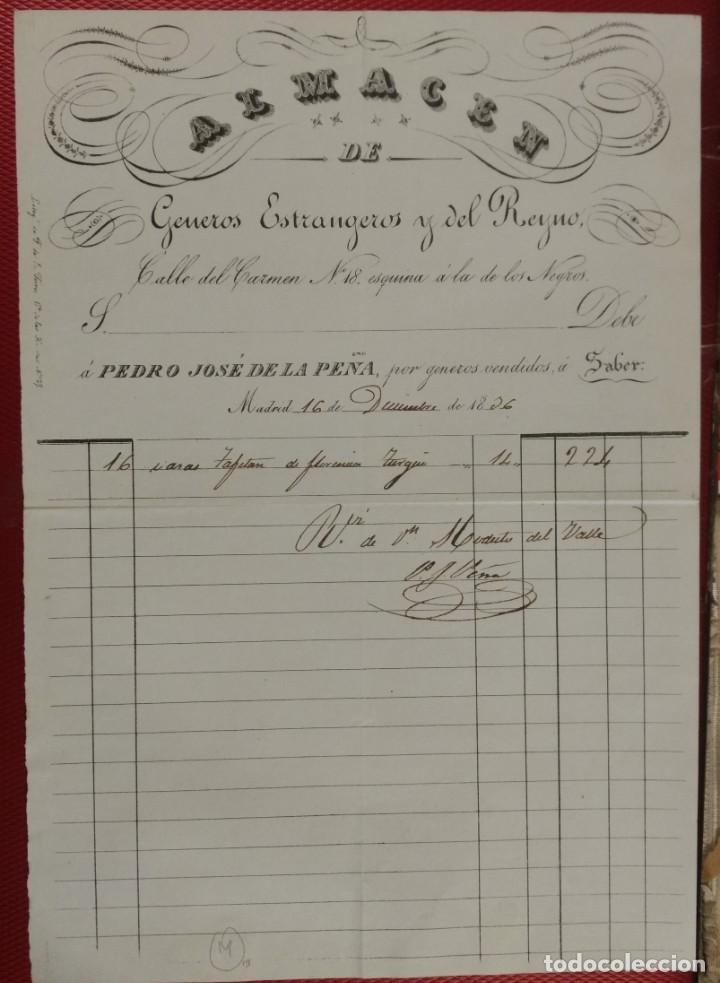 ALMACEN
DE
Generos Estrangeros y del Reyno,
Calle del Carmen N.º 18. esquina á la de los Negros.
S. Debe
á PEDRO JOSÉ DE LA PEÑA, por generos vendidos, á Saber:
Madrid 16 de Diciembre de 1836
16 varas Tafetan de florencia Turqui 14 224
R.vi de Dn Modesto del Valle
P. J. Peña
M
todocoleccion.net